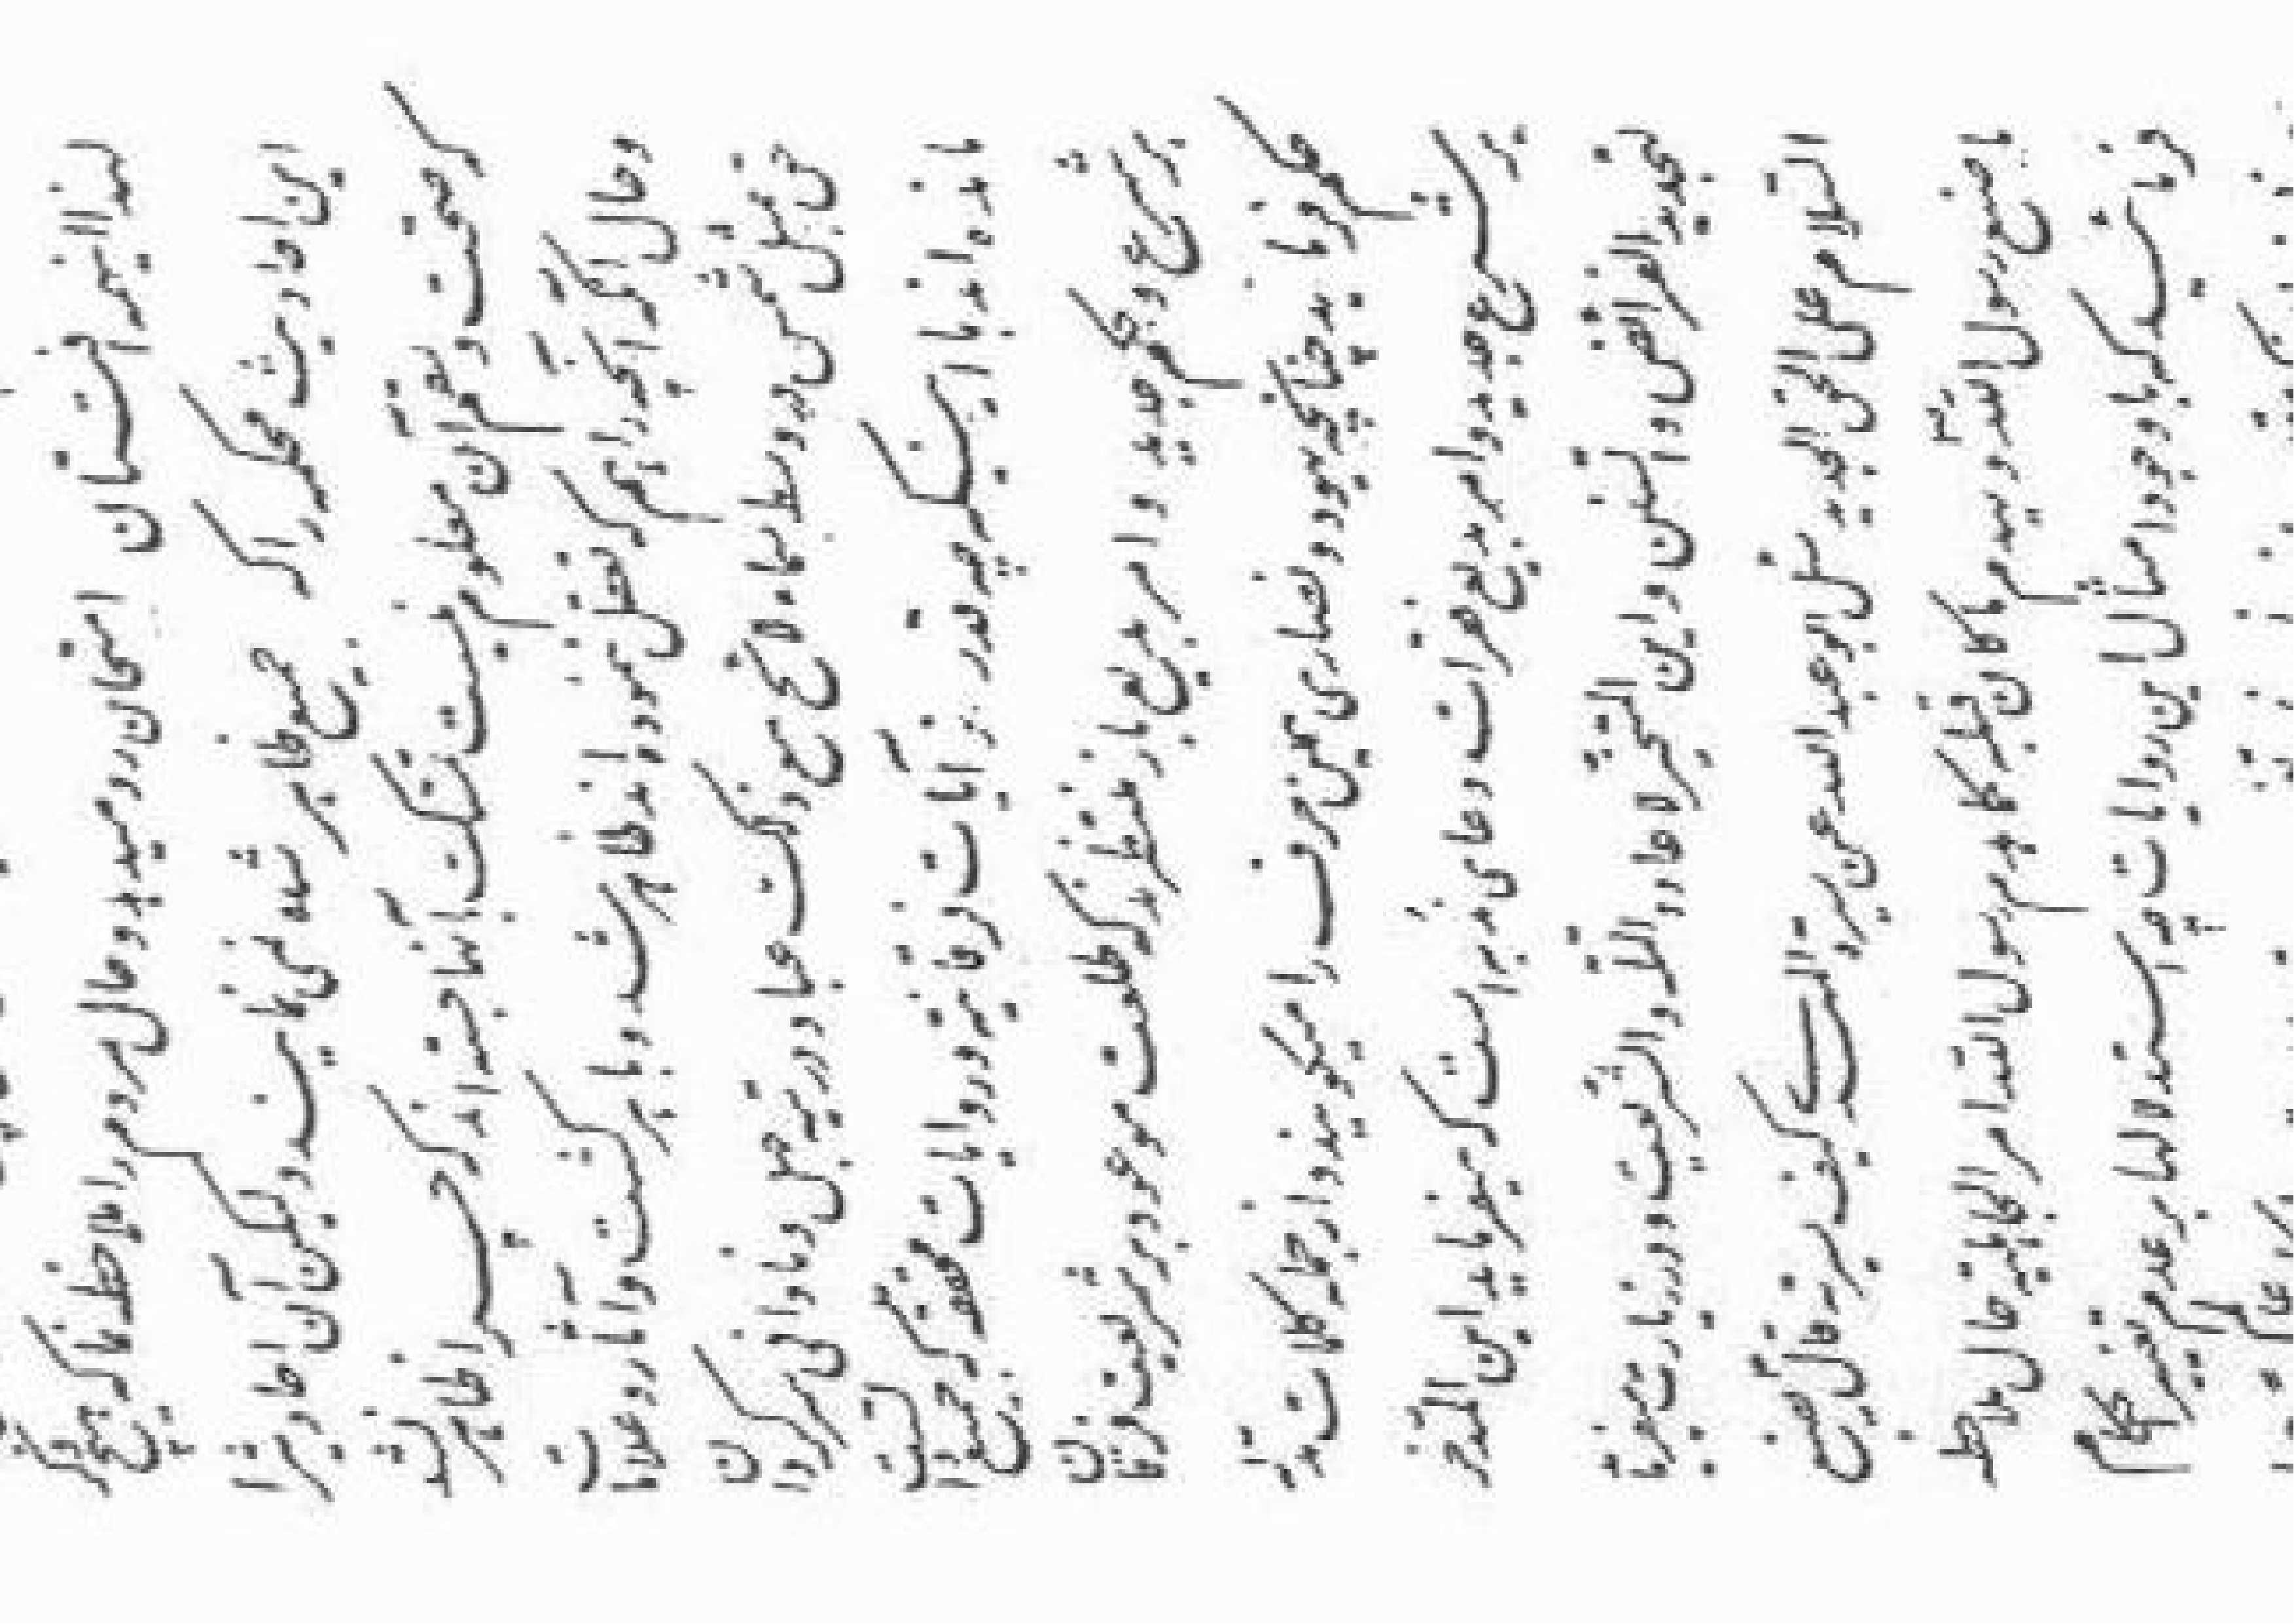 امتحان رو میدهد و حال مردم را ملاحظه نما که بهیچ وجه ذکر
این احادیث محکمه را که جمیع ظاهر شده نمی نمایند ولیکن آن احادیثی را
که صحت و سقم آن معلوم نیست تمسک بآنها جسته اند که چرا ظاهر نشد
و حال آنکه آنچه را هم که تعقل ننموده اند ظاهر شد و باهر گشت و آثار و علامات
حق مثل شمس در وسط سماء لائح مع ذلک عباد در تیه جهل و نادانی سرگردان
مانده اند با اینکه چه قدر از آیات فرقانیه و روایات محققه که جمیع دال است
بر شرع و حکم جدید و امر بدیع باز منتظرند که طلعت موعود بر شریعت فرقان
حکم فرماید چنانچه یهود و نصاری همین حرف را میگویند و از جمله کلمات مدلّه
بر شرع جدید و امر بدیع فقرات دعای ندبه است که میفرماید این المدّخر
لتجدید الفرائض و السّنن و این المتخیّر لاعادة الملّة و الشّریعة و در زیارت میفرماید
السّلام علی الحقّ الجدید سئل ابو عبدالله عن سیرة المهدی کیف سیرته قال یصنع
ما صنع رسول الله و یهدم ما کان قبله کما هدم رسول الله امر الجاهلیّة حال ملاحظه
فرمائید که با وجود امثال این روایات چه استدلالها بر عدم تغییر احکام